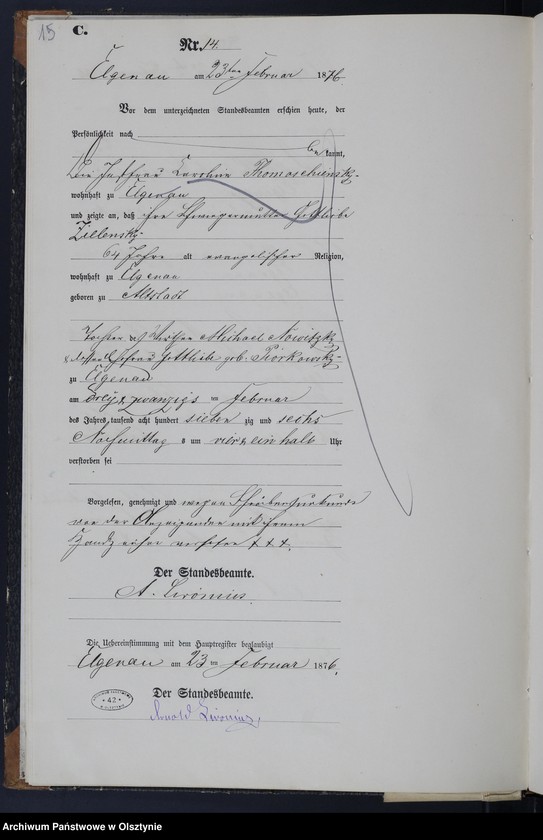 15
C.
Nr. 14.
Elgenau am 23ten Februar 1876
Vor dem unterzeichneten Standesbeamten erschien heute, der
Persönlichkeit nach
bekannt,
Die Karoline Thomaschewsky
wohnhaft zu Elgenau
und zeigte an, daß ihre Schwiegermutter Gottliebe
Zillensky
64 Jahre alt evangelischer Religion,
wohnhaft zu Elgenau
geboren zu Altstadt
Tochter des Michael Nowitzky
& dessen Ehefrau Gottliebe geb. Piorkowsky
zu Elgenau
am drei & zwanzigs ten Februar
des Jahres tausend acht hundert sieben zig und sechs
Nachmittag s um vier & ein halb Uhr
verstorben sei
Vorgelesen, genehmigt und wegen Schreibensunkunde
von der Anzeigenden mit ihrem
Handzeichen versehen + + +.
Der Standesbeamte.
A. Livonius.
Die Uebereinstimmung mit dem Hauptregister beglaubigt
Elgenau am 23 ten Februar 1876.
Der Standesbeamte.
Arnold Livonius.
42
Archiwum Państwowe w Olsztynie